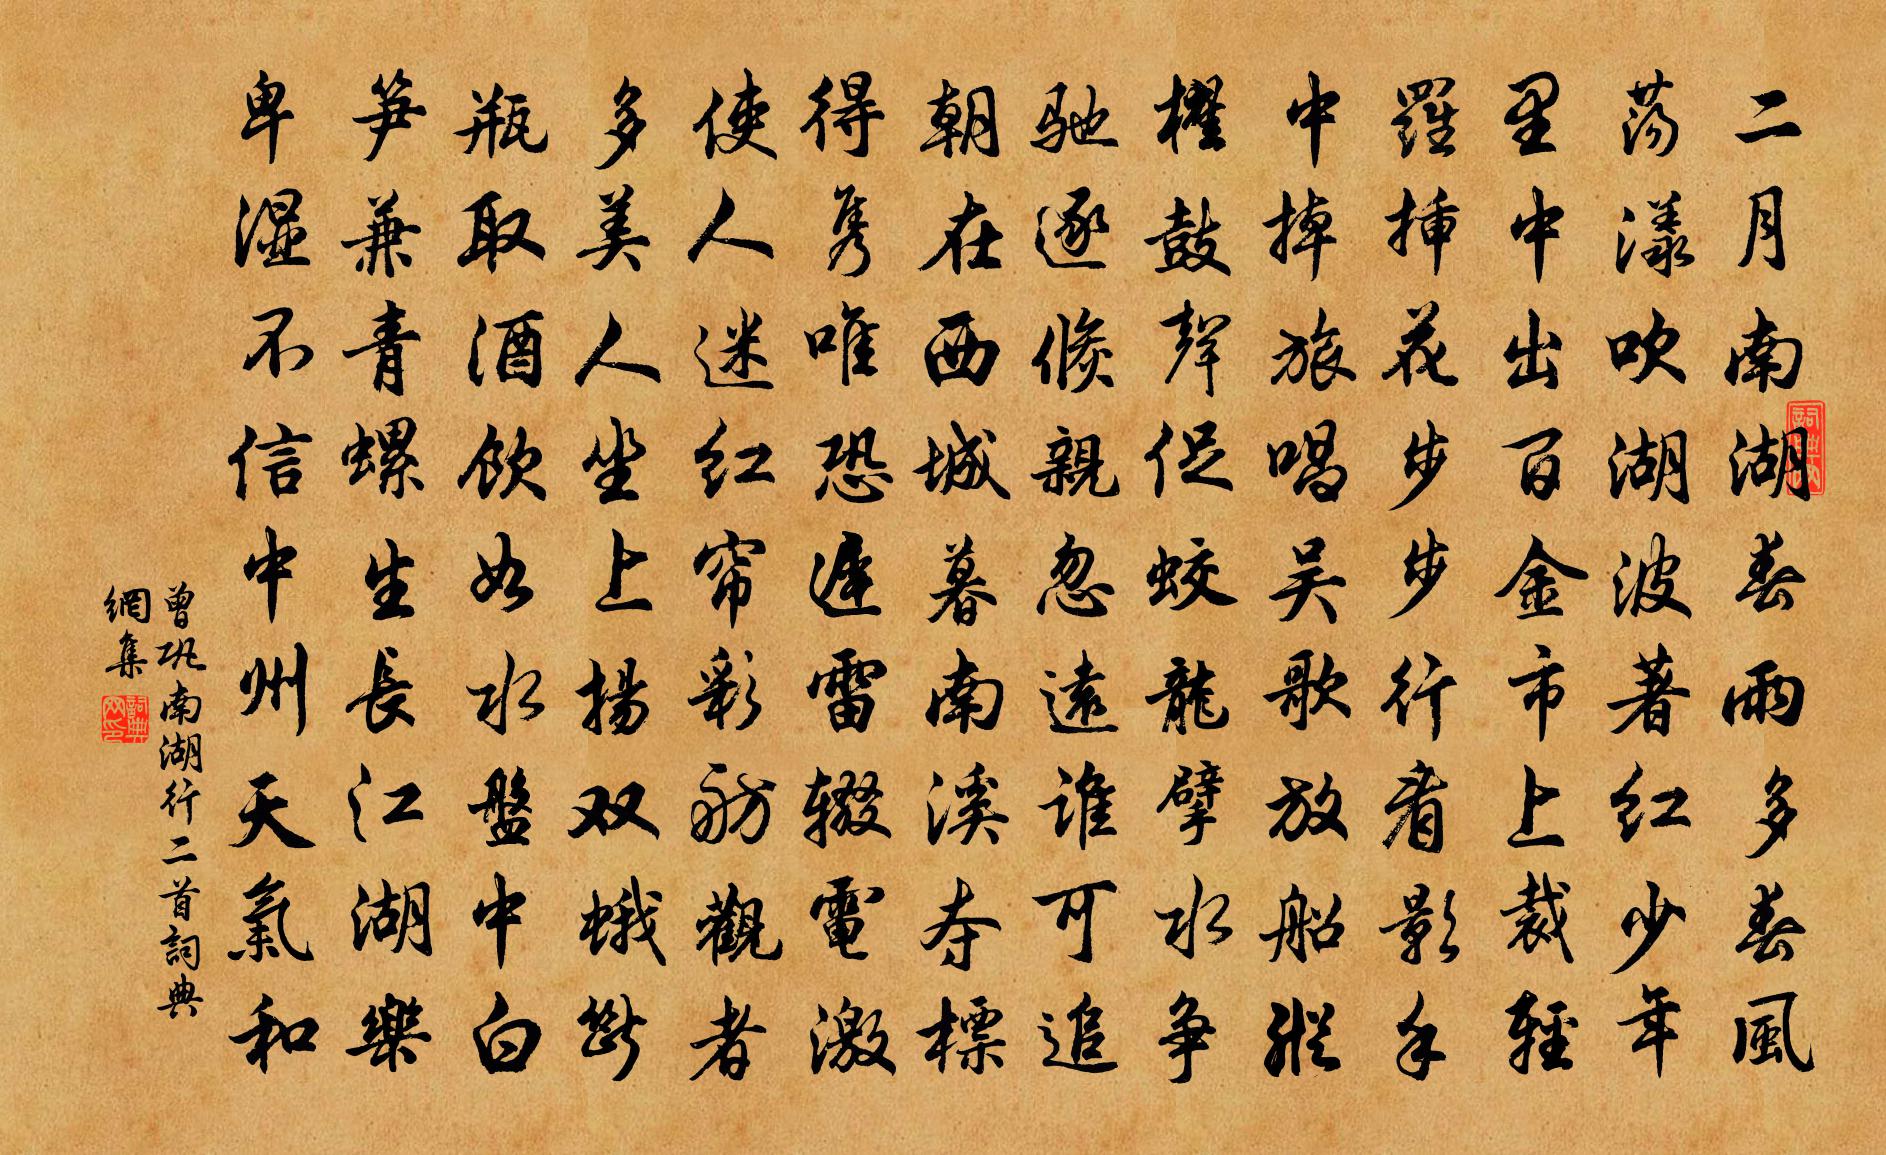 二月南湖春雨多春風
蕩漾吹湖波著红少年
里中出百金市上裁輕
羅插花步步行看影手
中掉旅唱吴歌放船縱
櫂鼓聲促蛟龍擘水争
馳逐倏親忽遠誰可追
朝在西城暮南溪夺標
得隽唯恐遲雷辍電激
使人迷红帘彩舫觀者
多美人坐上揚双蛾斷
瓶取酒飲如水盤中白
笋兼青螺生長江湖樂
卑濕不信中州天氣和
曾巩南湖行二首詞典
網集